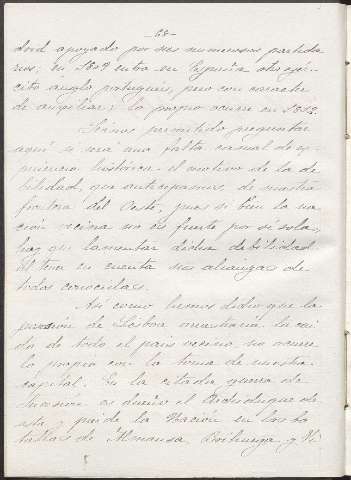 -68-
drid apoyado por sus numerosos partida-
rios; en 1809 entra en España otro ejér-
cito anglo portugués, pero con caracter
de auxiliar; lo propio ocurre en 1812.
Séanos permitido preguntar
aquí si será una falta casual de ex-
periencia histórica el motivo de la de-
bilidad, que anticipamos, de nuestra
frontera del Oeste, pues si bien la na-
ción vecina no es fuerte por si sola,
hay que lamentar dicha debilidad
al tener en cuenta sus alianzas de
todos conocidas.
Así como hemos dicho que la
posesión de Lisboa acarrearía la caí-
da de todo el país vecino, no ocurre
lo propio con la toma de nuestra
capital. En la citada guerra de
Sucesión es dueño el Archiduque de
esta y pierde la Nación en las ba-
tallas de Almansa, Brihuega y Vi-